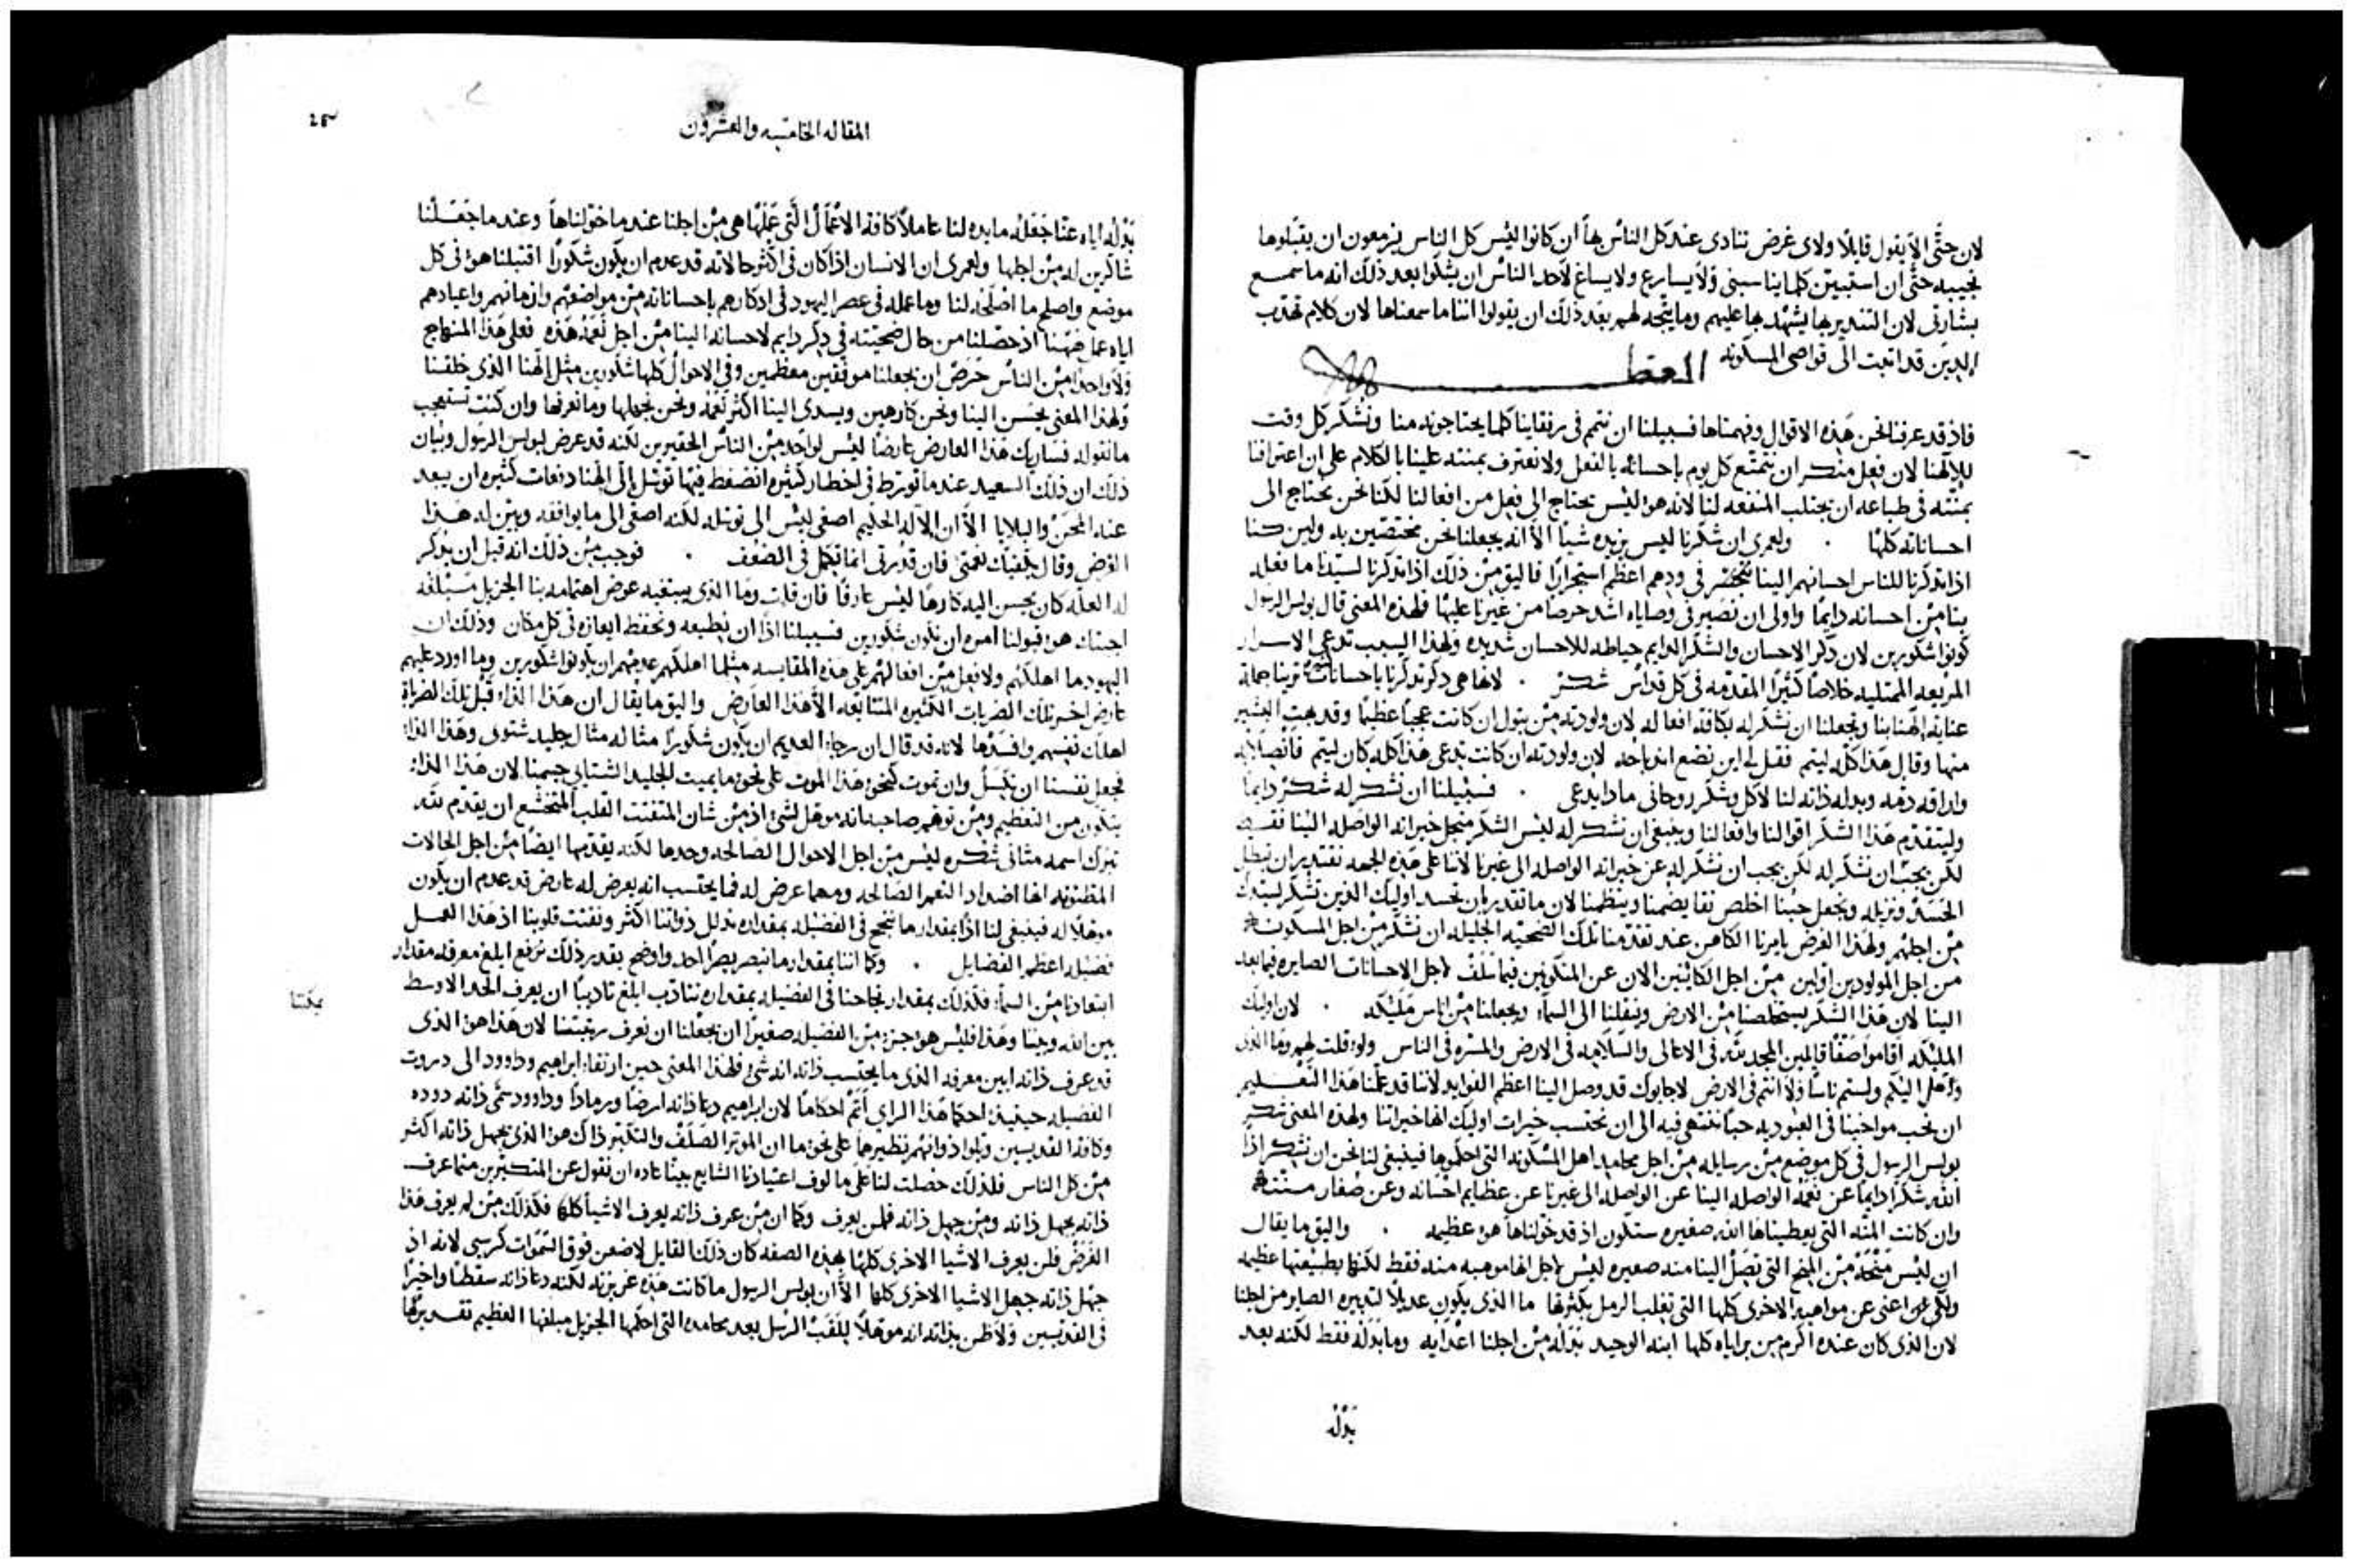 لان حتى الا يقول قايلًا ولاى غرض تنادى عند كل الناس بها ان كانوا ليس كل الناس يزمعون ان يقبلوها
نجيبه حتى ان استبين كلما يناسبنى ولا يسارع ولا يساغ لاحد الناس ان يشكوا بعد ذلك انه ما سمع
بشارتى لان التنذير بها يشهد بها عليهم وما يتجه لهم بعد ذلك ان يقولوا اننا ما سمعناها لان كلام تهذب
الذين قد اتبت الى قواصى المسكونه العظه
فاذ قد عرفنا نحن هذه الاقوال وفهمناها فسبيلنا ان نتمم فى رفقاينا كلما يحتاجونه منا ونشكر كل وقت
لالاهنا لان فعل منكر ان نتمتع كل يوم باحسانه بالفعل ولا نعترف بمنته علينا بالكلام على ان اعترافنا
بمنته فى طباعه ان يجتلب المنفعه لنا لانه هو ليس يحتاج الى فعل من افعالنا لكنا نحن نحتاج الى
احساناته كلها . ولعمرى ان شكرنا ليس يزيده شيا الا انه يجعلنا نحن مختصين به ولين كنا
اذا تذكرنا للناس احسانهم الينا نتحضر فى ودهم اعظم استحرارًا فاليق من ذلك اذا تذكرنا لسيدنا ما فعله
بنا من احسانه دايمًا واولى ان نصير فى وصاياه اشد حرصا من غيرنا عليها فلهذه المعنى قال بولس الرسول
كونوا شكورين لان ذكر الاحسان والشكر الدايم حياطه للاحسان شديده ولهذا السبب تدعى الاسرار
المريعه الممتليه خلاصًا كثيرًا المقدمه فى كل قداس شكر . لانها هى ذكر تذكرنا باحسانات كثيره ترينا جملة
عناية الهنا بنا وتجعلنا ان نشكر له بكافة افعاله لان ولودته من بتول ان كانت عجبًا عظيمًا وقد بهت البشير
منها وقال هذا كله ليتم فقل لى اين نضع انذباحه لان ولودته ان كانت تدعى هذا كله كان ليتم فانصلابه
واراقه دمه وبدله ذاته لنا لاكل وشكر روحانى ماذا يدعى . فسبيلنا ان نشكر له شكرًا دايمًا
وليتقدم هذا الشكر اقوالنا وافعالنا وينبغى ان نشكر له ليس الشكر من اجل خيراته الواصله الينا فقط
لكن يجب ان نشكر له عن خيراته الواصله الى غيرنا لاننا على هذه الجهه نقتدير ان نبطل
الحسد ونزيله ونجعل حبنا اخلص نقا يضمنا وينظمنا لان ما نقتدير ان نحسد اوليك الذين تشكر لسيدك
من اجلهم ولهذا الغرض يامرنا الكاهن عند تقدمنا تلك الضحيه الجليله ان نشكر من اجل المسكونه
من اجل المولودين اولين من اجل الكاينين الان عن المتكونين فيما سلف لاجل الاحسانات الصايره فيما بعد
الينا لان هذا الشكر يستخلصنا من الارض وينقلنا الى السماء ويجعلنا من اناس مليكه . لان اوليك
المليكه اقاموا صفًا قايلين المجد لله فى الاعالى والسلامه فى الارض والمسره فى الناس ولو قلت لهم وما الذى
وصل اليكم ولستم ناسًا ولا انتم فى الارض لاجابوك قد وصل الينا اعظم الفوايد لاننا قد علمنا هذا التعليم
ان نحب مواخينا فى العبوديه حبًا ننتهى فيه الى ان نحتسب خيرات اوليك انها خيراتنا ولهذه المعنى شكر
بولس الرسول فى كل موضع من رسايله من اجل محامد اهل المسكونه التى احكموها فينبغى لنا نحن ان نشكر اذًا
الله شكرًا دايمًا عن نعمه الواصله الينا عن الواصله الى غيرنا عن عظايم احسانه وعن صغار مننه
وان كانت المنه التى يعطيناها الله صغيره ستكون اذ قد خولناها هو عظيمه . واليق ما يقال
ان ليس منحة من المنح التى تصل الينا منه صغيره ليس لاجل انها موهبه منه فقط لكنها بطبيعتها عظيمه
ولكى اعنى عن مواهبه الاخرى كلها التى تغلب الرمل بكثرتها ما الذى يكون عديلًا لتدبيره الصاير من اجلنا
لان الذى كان عنده اكرم من براياه كلها ابنه الوحيد بذله من اجلنا اعدايه وما بذله فقط لكنه بعد
بذله
المقاله الخامسه والعشرون
بذله اياه عنا جعله مايده لنا عاملًا كافة الاعمال التى عملها هى من اجلنا عند ما خولناها وعند ما جعلنا
شاكرين له من اجلها ولعمرى ان الانسان اذا كان فى اكثر حالاته قد عدم ان يكون شكورًا اقتبلنا هو فى كل
موضع واصلح ما اصلحه لنا وما عمله فى عصر اليهود فى ادكارهم باحساناته من مواضعهم وازمانهم واعيادهم
اياه عمل ههنا اذ حصلنا من حال ضحيته فى ذكر دايم لاحسانه الينا من اجل نعمه هذه فعلى هذا المنهاج
ولا واحدًا من الناس حرص ان يجعلنا موفقين معظمين وفى الاحوال كلها شكورين مثل الهنا الذى خلقنا
ولهذا المعنى يحسن الينا ونحن كارهين ويسدى الينا اكثر نعمه ونحن نجهلها وما نعرفها وان كنت تستعجب
ما نقوله فساريك هذا العارض عارضًا ليس لواحد من الناس الحقيرين لكنه قد عرض لبولس الرسول وبيان
ذلك ان ذلك السعيد عند ما تورط فى اخطار كثيره انضغط فيها توسل الى الهنا دفعات كثيره ان يبعد
عنه المحن والبلايا الا ان الاله الحليم اصغى ليس الى توسله لكنه اصغى الى ما يوافقه وبين له هذا
الغرض وقال يكفيك نعمتى فان قدرتى انما تكمل فى الضعف . فوجب من ذلك انه قبل ان يذكر
له العله كان يحسن اليه كارهًا ليس عارفًا فان قلت وما الذى يبتغيه عوض اهتمامه بنا الجزيل مبلغه
اجبتك هو قبولنا امره ان نكون شكورين فسبيلنا اذًا ان نطيعه ونحفظ ايعازه فى كل مكان وذلك ان
اليهود ما اهلكهم ولا فعل من افعالهم على هذه المقايسه مثلما اهلكهم عدمهم ان يكونوا شكورين وما اورد عليهم
عارض اخر تلك الضربات الكثيره المتتابعه الا هذا العارض واليق ما يقال ان هذا الداء قبل تلك الضربات
اهلك نفسهم وافسدها لانه قد قال ان رجاء العديم ان يكون شكورًا مثاله مثال جليد شتوى وهذا الداء
فجعل نفسنا ان تكسل وان تموت كنحو هذا الموت على نحو ما يميت الجليد الشتاى جسمنا لان هذا الداء
يتكون من التعظم ومن توهم صاحبه انه موهل لشى اذ من شان المتفتت القلب المتخشع ان يقدم لله
تبارك اسمه مثانى شكره ليس من اجل الاحوال الصالحه وحدها لكنه يقدمها ايضًا من اجل الحالات
المظنونه انها اضداد النعم الصالحه ومهما عرض له فما يحتسب انه يعرض له عارض قد عدم ان يكون
موهلًا له فينبغى لنا اذًا بمقدار ما ننجح فى الفضيله بمقداره نذلل ذواتنا اكثر ونفتت قلوبنا اذ هذا العمل
فضيله اعظم الفضايل . وكما اننا بمقدار ما نبصر بصرًا احد واوضح بقدر ذلك نرفع ابلغ معرفه مقدار
ابتعادنا من السماء فكذلك بمقدار نجاحنا فى الفضيله بمقداره نتادب ابلغ تادبًا ان نعرف الحد الاوسط
يمكننا
بين الله وبينا وهذا فليس هو جزء من الفضيله صغيرًا ان يجعلنا ان نعرف رتبتنا لان هذا هو الذى
قد عرف ذاته ابين معرفه الذى ما يحتسب ذاته انه شى فلهذا المعنى حين ارتقاء ابراهيم وداوود الى ذروت
الفضيله حينيذ احكما هذا الراى اتم احكامًا لان ابراهيم دعا ذاته ارضًا ورمادًا وداوود سمى ذاته دوده
وكافة القديسين ذواتهم نظيرهما على نحو ما ان الموتر الصلف والتكبر ذاك هو الذى يجهل ذاته اكثر
من كل الناس فلذلك حصلت لنا على مالوف اعتيادنا الشايع بينا عاده ان نقول عن المتكبرين منا ما عرف
ذاته يجهل ذاته ومن جهل ذاته فلمن يعرف وكما ان من عرف ذاته يعرف الاشيا كلها فكذلك من لم يعرف هذا
الغرض فلن يعرف الاشيا الاخرى كلها بهذه الصفه كان ذلك القايل لاضعن فوق السموات كرسى لانه اذ
جهل ذاته جهل الاشيا الاخرى كلها الا ان بولس الرسول ما كانت هذه غريزته لكنه دعا ذاته سقطًا واخيرًا
فى القديسين ولا ظن بذاته انه موهلًا بلقب الرسل بعد محامده التى احكمها الجزيل مبلغها العظيم تقديرها